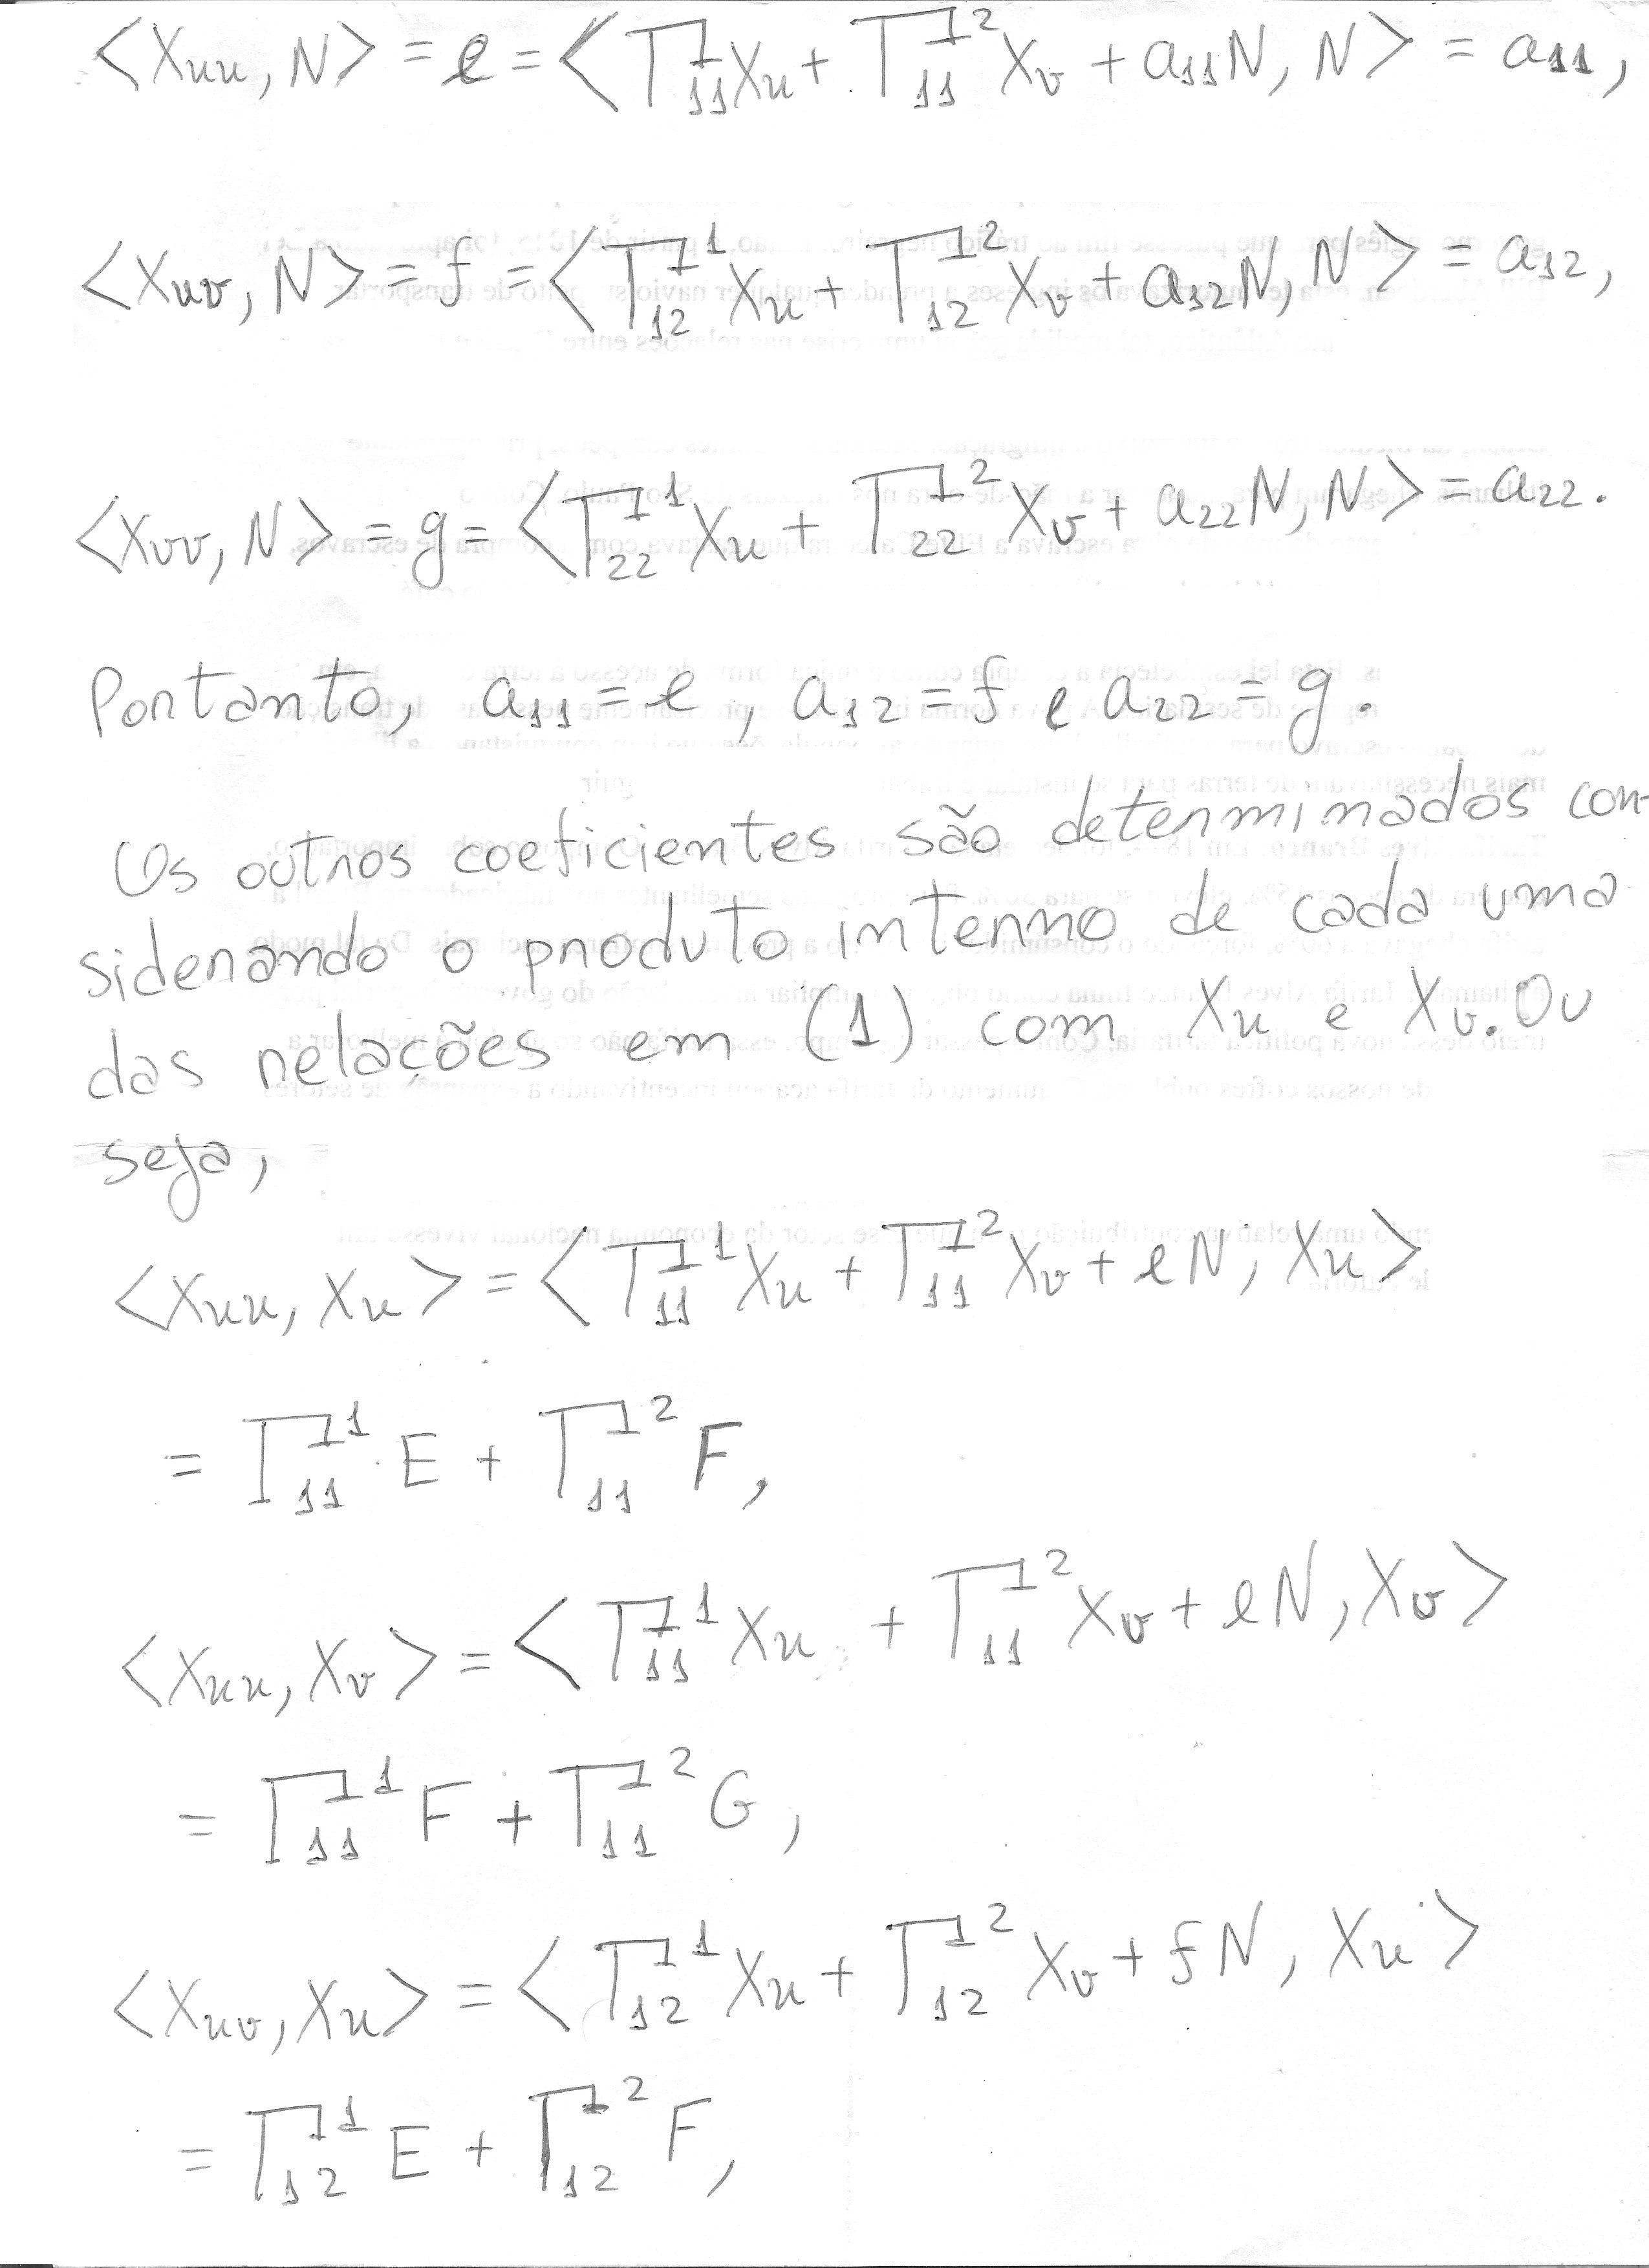 ⟨Xuu, N⟩ = e = ⟨Γ¹₁₁Xu + Γ²₁₁Xv + a₁₁N, N⟩ = a₁₁,
⟨Xuv, N⟩ = f = ⟨Γ¹₁₂Xu + Γ²₁₂Xv + a₁₂N, N⟩ = a₁₂,
⟨Xvv, N⟩ = g = ⟨Γ¹₂₂Xu + Γ²₂₂Xv + a₂₂N, N⟩ = a₂₂.
Portanto, a₁₁ = e, a₁₂ = f e a₂₂ = g.
Os outros coeficientes são determinados con-
siderando o produto interno de cada uma
das relações em (1) com Xu e Xv. Ou
seja,
⟨Xuu, Xu⟩ = ⟨Γ¹₁₁Xu + Γ²₁₁Xv + eN, Xu⟩
= Γ¹₁₁E + Γ²₁₁F,
⟨Xuu, Xv⟩ = ⟨Γ¹₁₁Xu + Γ²₁₁Xv + eN, Xv⟩
= Γ¹₁₁F + Γ²₁₁G,
⟨Xuv, Xu⟩ = ⟨Γ¹₁₂Xu + Γ²₁₂Xv + fN, Xu⟩
= Γ¹₁₂E + Γ²₁₂F,